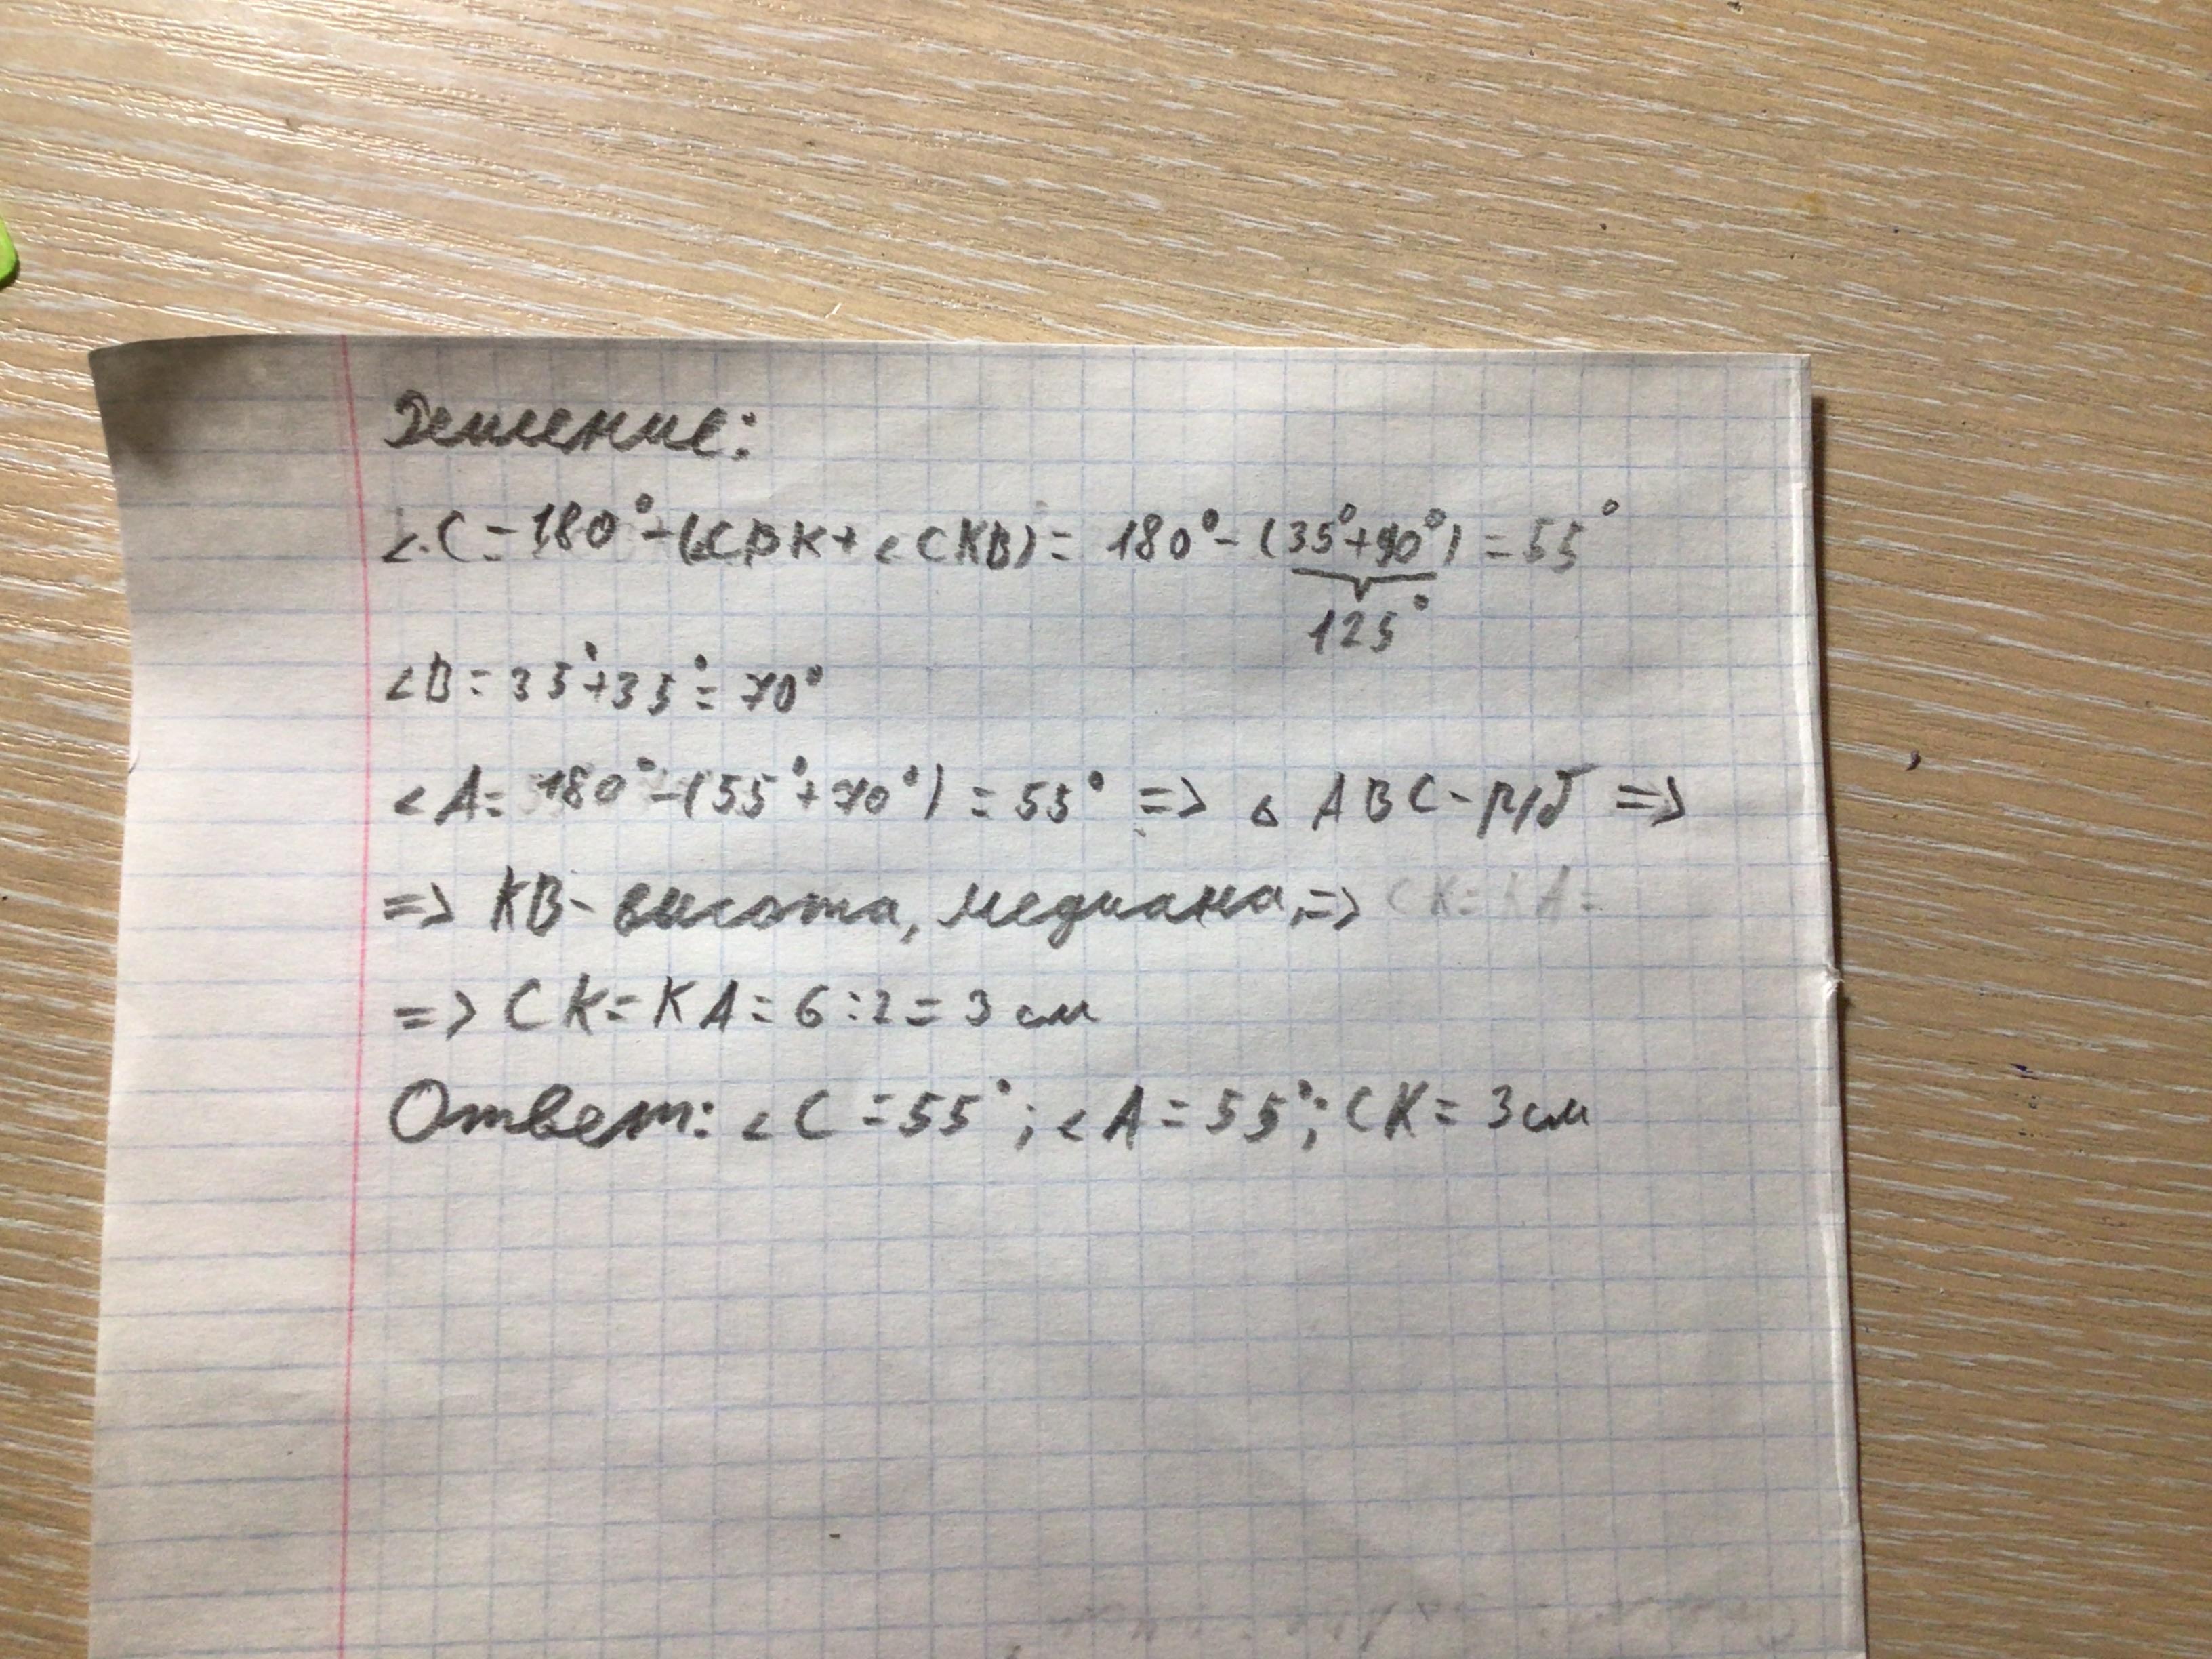 Решение:
∠C=180°-(∠CBK+∠CKB)=180°-(35°+90°)=55°
125°
∠B=35°+35°=70°
∠A=180°-(55°+70°)=55° => △ABC-р/б =>
=> KB-высота, медиана, => CK=KA=
=> CK=KA=6:2=3 см
Ответ: ∠C=55°; ∠A=55°; CK=3 см